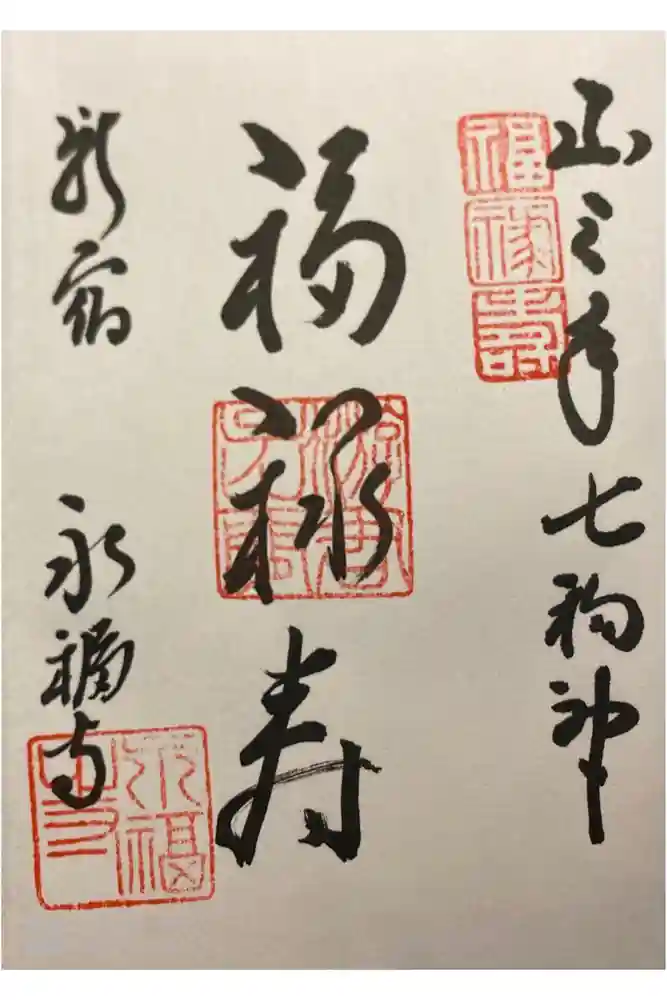 山之手七福神
福禄寿
福禄寿
新宿
永福寺
永福寺